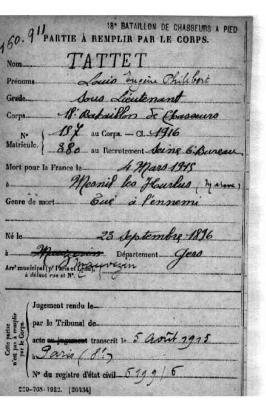 18e BATAILLON DE CHASSEURS A PIED
160.911
PARTIE A REMPLIR PAR LE CORPS.
Nom TATTET
Prénoms Louis Eugène Philibert
Grade Sous Lieutenant
Corps 18e Bataillon de Chasseurs
No 157 au Corps. — Cl. 1916
Matricule. 880 au Recrutement Seine 6e Bureau
Mort pour la France le 4 Mars 1915
à Mesnil les Hurlus (Marne)
Genre de mort Tué à l'ennemi
Né le 23 Septembre 1896
à Mauvezin Département Gers
Arrt municipal (pr Paris et Lyon), Mauvezin
à défaut rue et No.
Cette partie
n'est pas à remplir
par le Corps.
Jugement rendu le
par le Tribunal de
acte ou jugement transcrit le 5 Août 1915
Paris (8e)
No du registre d'état civil 5199/6
550-708-1922. [26434]